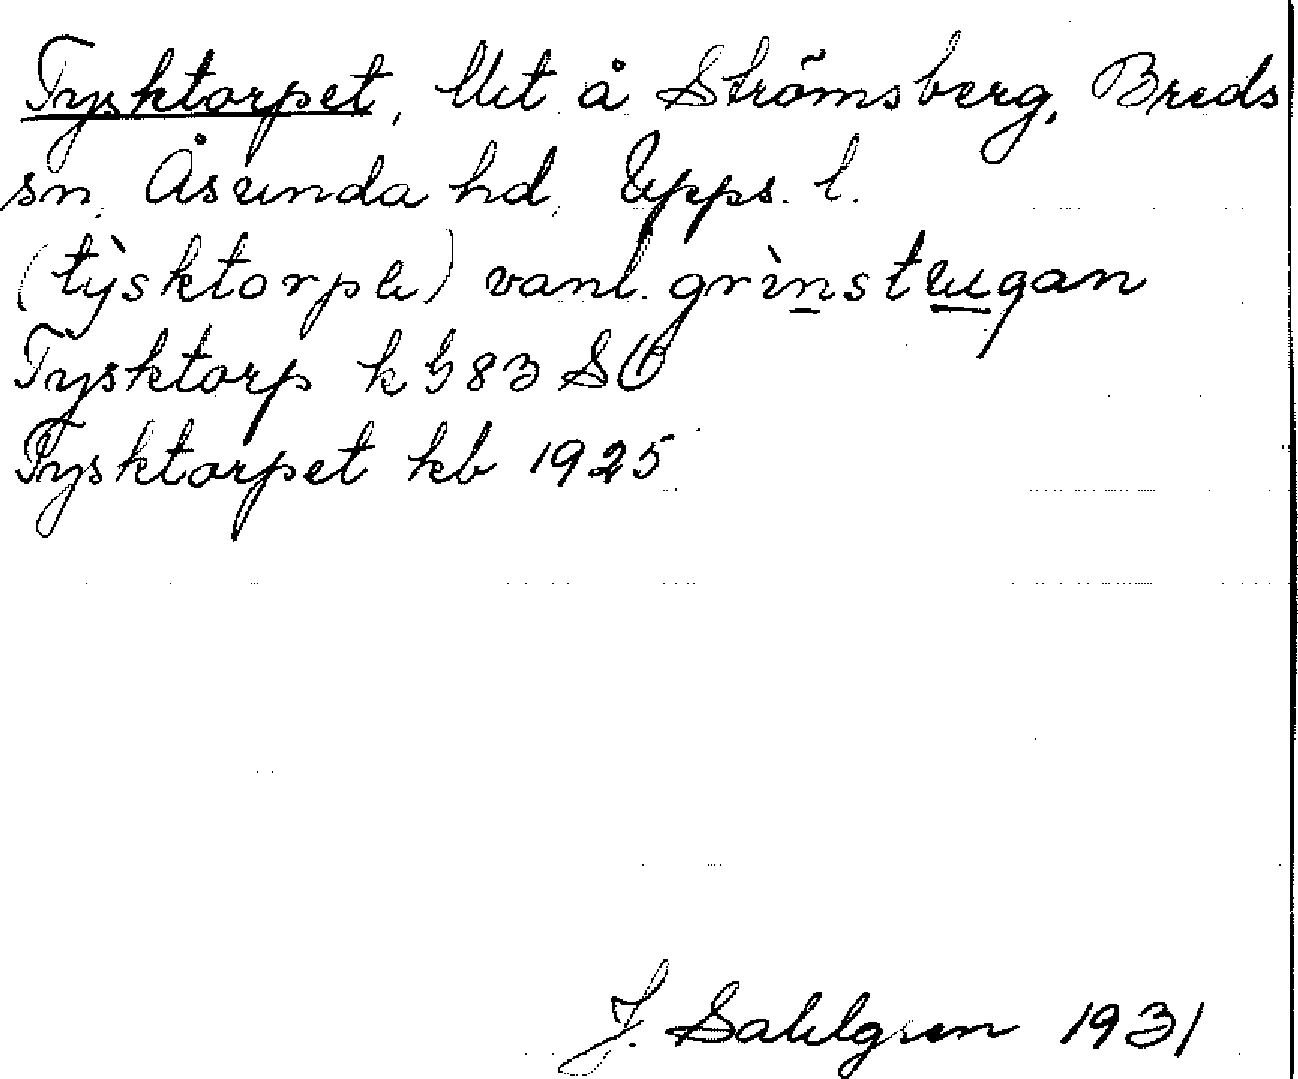 Tysktorpet, Ut å Strömsberg, Breds
sn, Åsunda hd, Upps. l.
(tỳsktorpe) vanl. grìnsteugan
Tysktorp k
Tysktorpet kb 1925
J. Sahlgren 1931